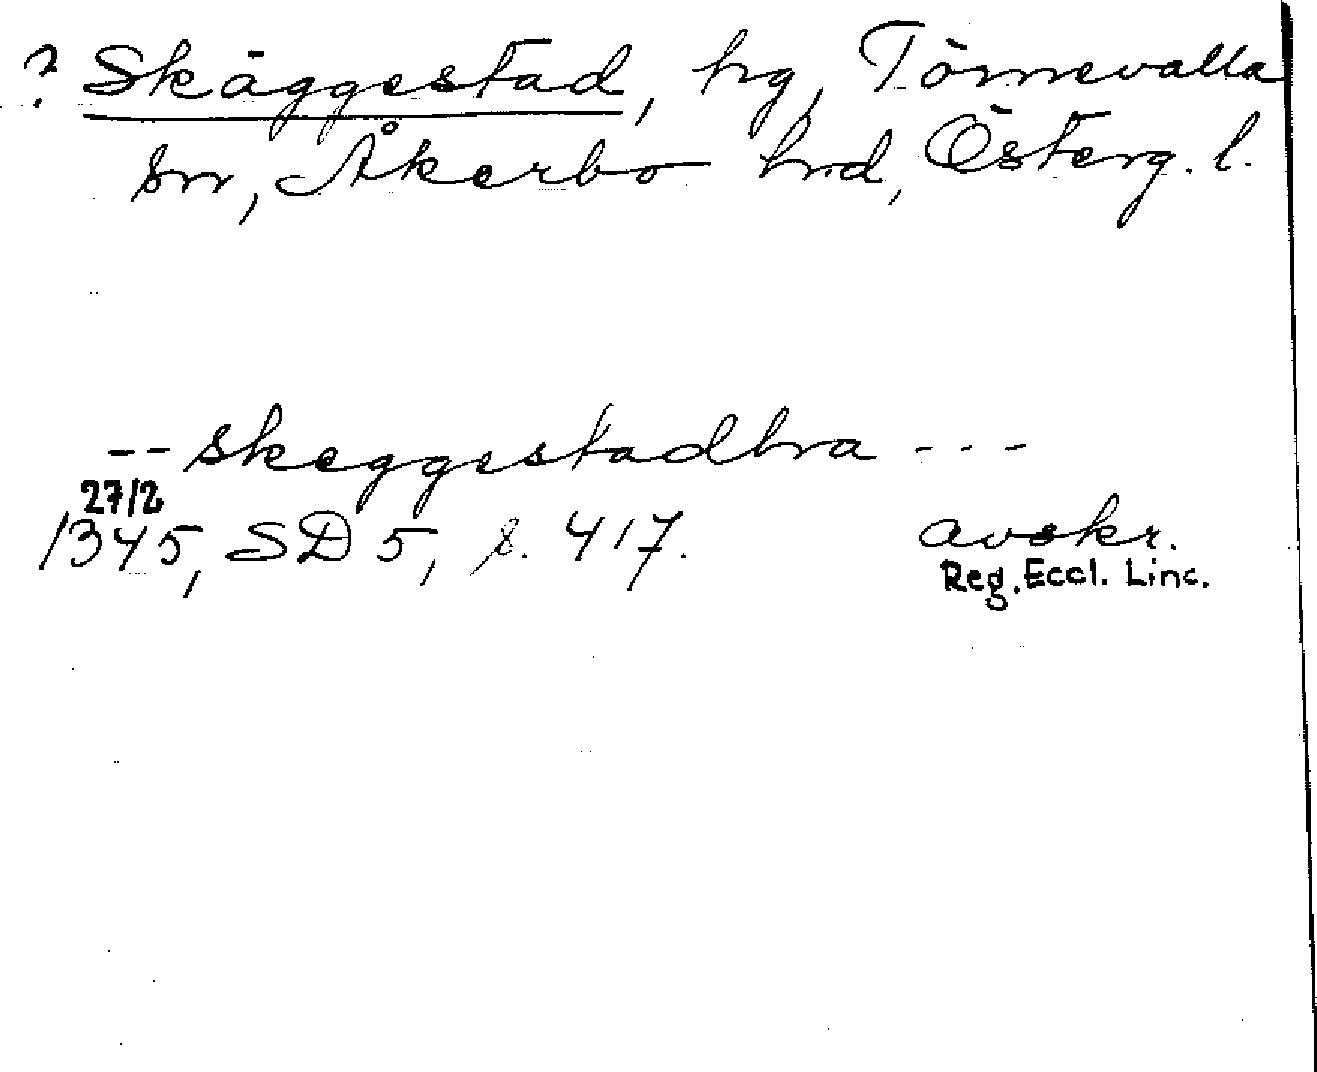 ? Skäggestad, hg, Törnevalla
sn, Åkerbo hrd, Österg. l.
-- skeggestadhra ---
27/2
1345, SD 5, s. 417. avskr.
Reg. Eccl. Linc.